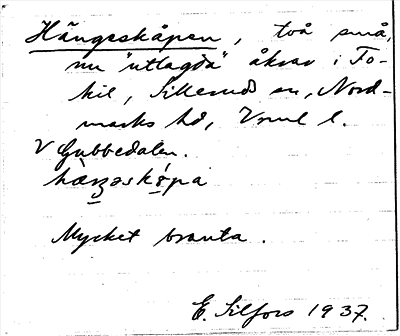 Hängeskåpen, två små,
nu "utlagda" åkrar i To-
kil, Sillerud sn, Nord-
marks hd, Vrml l.
V Gubbedalen.
hæŋəsköpa
Mycket branta.
E. Silfors 1937.